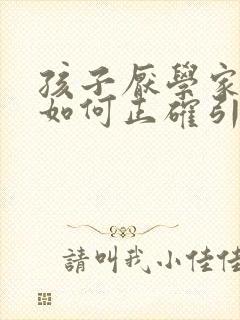 孩子厭學家
如何正確引
請叫我小佳佳